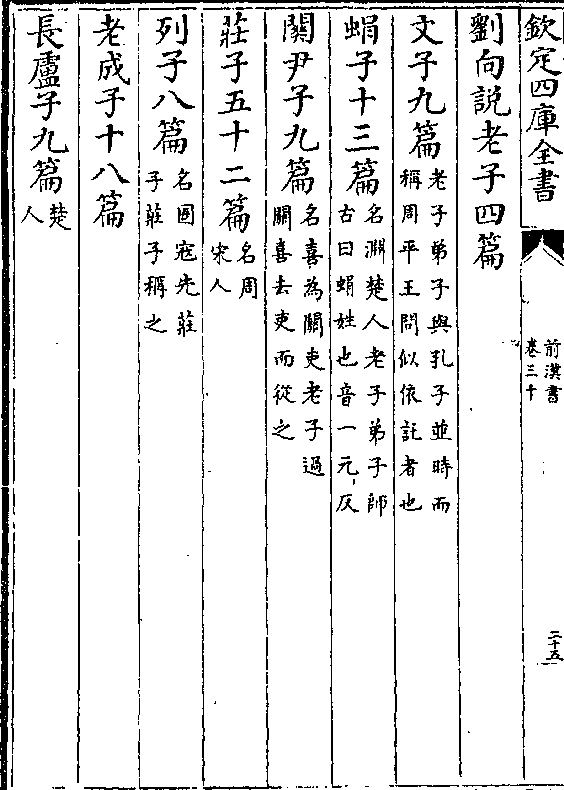 欽定四庫全書
前漢書
卷三十
二十五
劉向說老子四篇
文子九篇老子弟子與孔子並時而
稱周平王問似依託者也
蜎子十三篇名淵楚人老子弟子師
古曰蜎姓也音一元反
關尹子九篇名喜為關吏老子過
關喜去吏而從之
莊子五十二篇名周
宋人
列子八篇名圄寇先莊
子莊子稱之
老成子十八篇
長盧子九篇楚
人